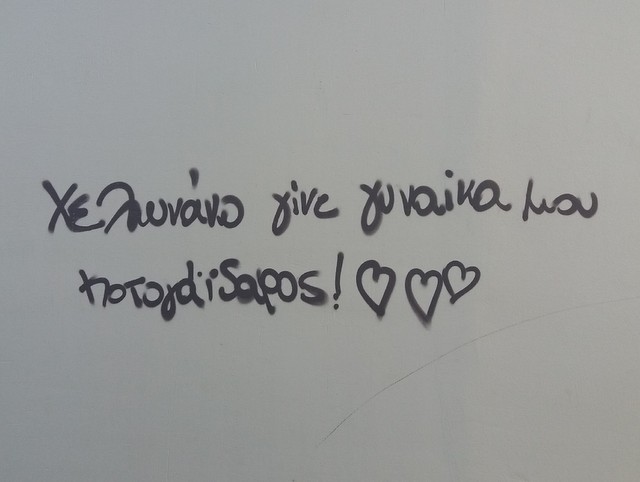 Χελωνάνο γίνε γυναίκα μου
ποτογάιδαρος! ♡♡♡